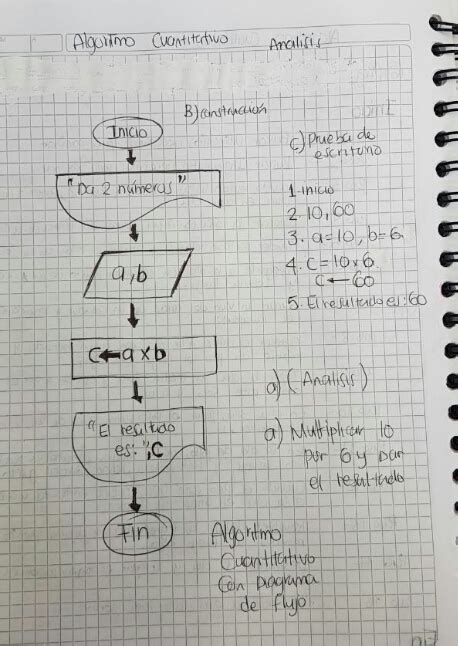 Algoritmo Cuantitativo Analisis
B) construcción
Inicio
"Da 2 números"
a,b
c←a×b
"El resultado
es:",c
Fin
c) Prueba de
escritorio
1. inicio
2. 10, 60
3. a=10, b=6
4. c=10×6
c ← 60
5. El resultado es: 60
a) (Analisis)
a) Multiplicar 10
por 6 y dar
el resultado
Algoritmo
Cuantitativo
Con Diagrama
de flujo